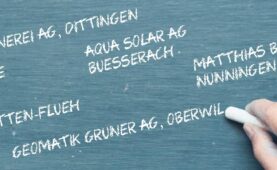 NEREI AG, DITTINGEN
AQUA SOLAR AG
BUESSERACH
MATTHIAS B
NUNNINGEN
E
TTEN-FLUEH
GEOMATIK GRUNER AG, OBERWIL